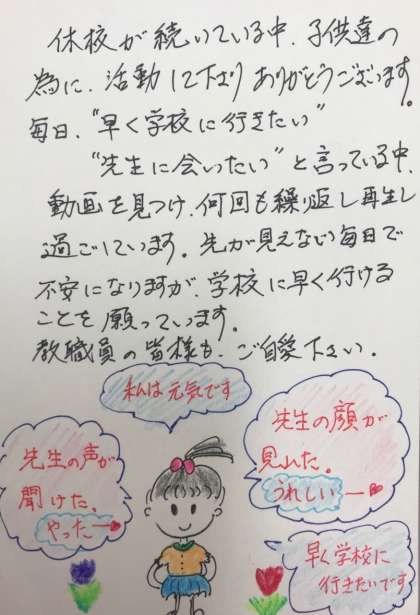 休校が続いている中、子供達の
為に、活動して下さり ありがとうございます。
毎日、"早く学校に行きたい"
"先生に会いたい" と言っている中、
動画を見つけ、何回も繰り返し再生し
過ごしています。先が見えない毎日で
不安になりますが、学校に早く行ける
ことを願っています。
教職員の皆様も、ご自愛下さい。
私は元気です
先生の声が
聞けた。
やったー
先生の顔が
見れた。
うれしいー
早く学校に
行きたいです